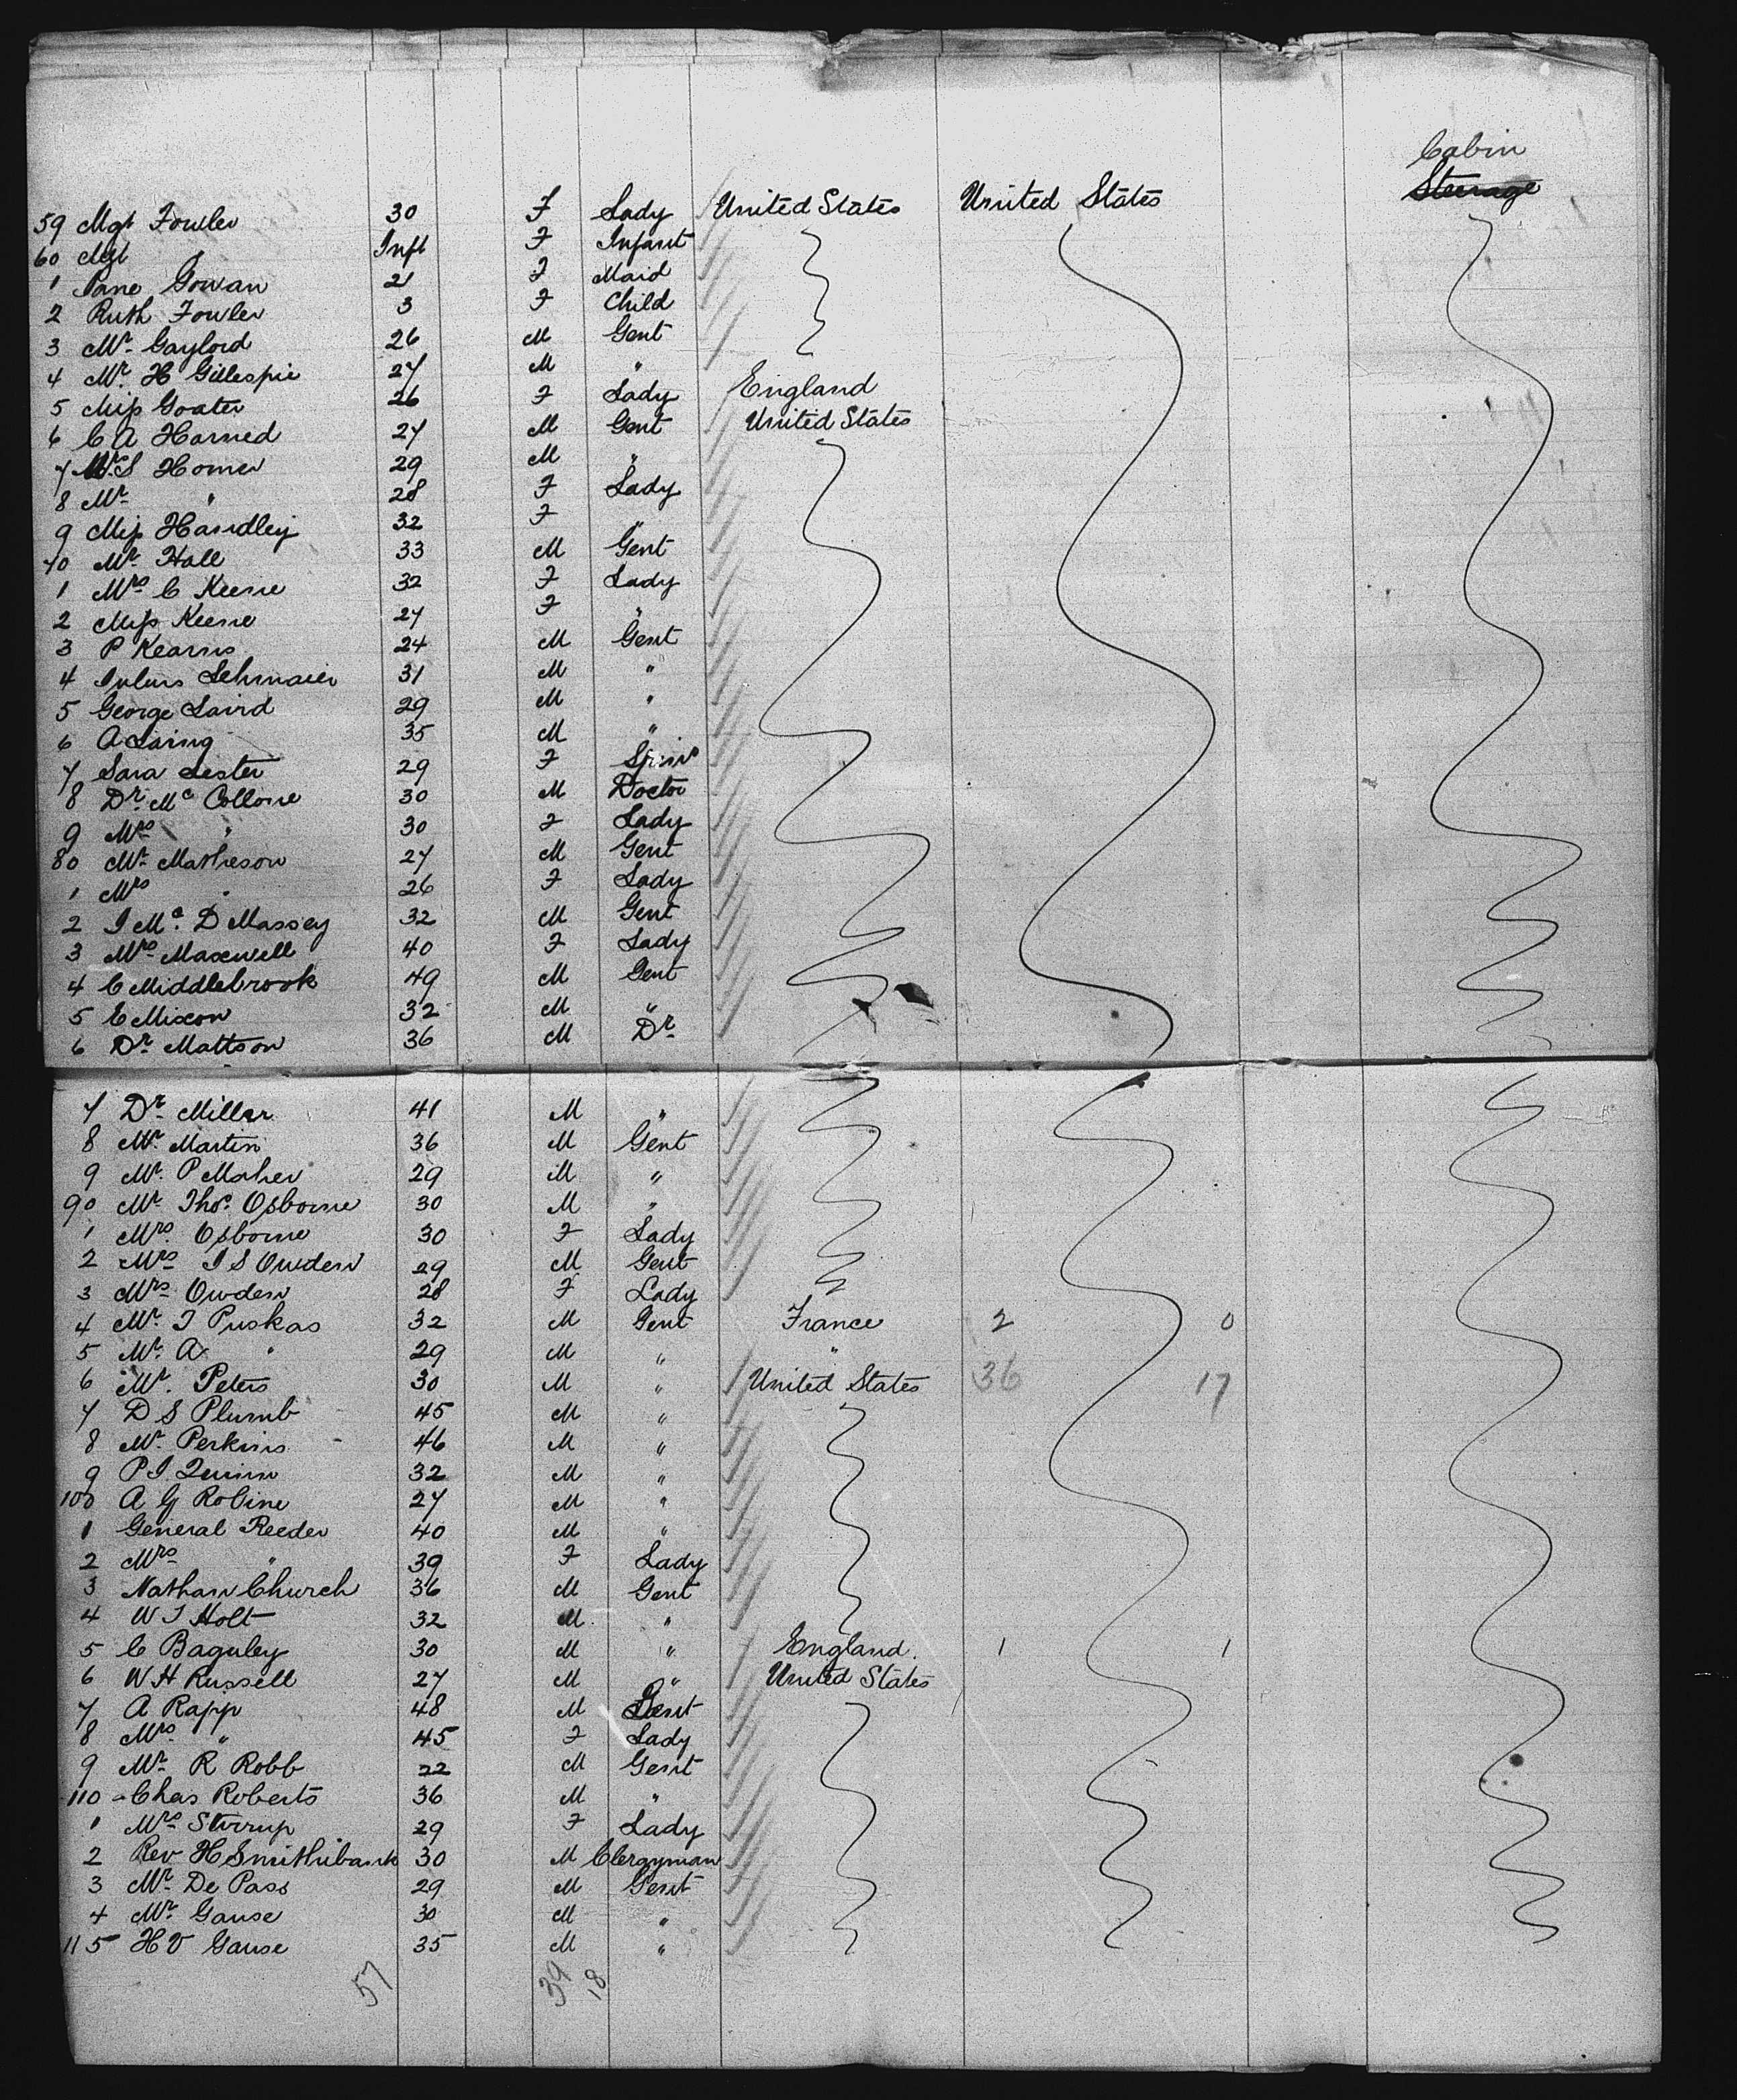 Cabin
Steerage
59 Mgt Fowler 30 F Lady United States United States
60 Mgt " Inft F Infant
1 Jane Gowan 21 F Maid
2 Ruth Fowler 3 F Child
3 Mr. Gaylord 26 M Gent
4 Mr. H Gillespie 27 M "
5 Miss Goater 26 F Lady England
6 C A Harned 27 M Gent United States
7 S Homer 29 M "
8 Mr " 28 F Lady
9 Miss Handley 32 F "
70 Mr. Hall 33 M Gent
1 Mrs C Keene 32 F Lady
2 Miss Keene 27 F "
3 P Kearns 24 M Gent
4 Julius Lehmaier 31 M "
5 George Laird 29 M "
6 A Laing 35 M "
7 Sara Lester 29 F Spinr
8 Dr. Mc Collone 30 M Doctor
9 Mrs " 30 F Lady
80 Mr. Matheson 27 M Gent
1 Mrs " 26 F Lady
2 J Mc. D Massey 32 M Gent
3 Mrs Maxwell 40 F Lady
4 C Middlebrook 49 M Gent
5 E Mixon 32 M "
6 Dr. Mattson 36 M Dr
7 Dr. Miller 41 M "
8 Mr. Martin 36 M Gent
9 Mr. P Maher 29 M "
90 Mr. Thos. Osborne 30 M "
1 Mrs. Osborne 30 F Lady
2 Mrs J S Owden 29 M Gent
3 Mrs Owden 28 F Lady
4 Mr. T Puskas 32 M Gent France 2 0
5 Mr. A " 29 M " "
6 Mr. Peters 30 M " United States 36 17
7 D S Plumb 45 M "
8 Mr. Perkins 46 M "
9 P J Quinn 32 M "
100 A G Robine 27 M "
1 General Reeder 40 M "
2 Mrs " 39 F Lady
3 Nathan Church 36 M Gent
4 W T Holt 32 M "
5 C Baguley 30 M " England. 1 1
6 W H Russell 27 M " United States
7 A Rapp 48 M Gent
8 Mrs. " 45 F Lady
9 Mr. R Robb 22 M Gent
110 Chas Roberts 36 M "
1 Mrs Stirrup 29 F Lady
2 Rev H Smithibank 30 M Clergyman
3 Mr. De Pass 29 M Gent
4 Mr. Gause 30 M "
115 H V Gause 35 M "
57 39 18